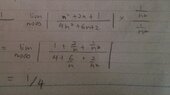 lim n→∞ | n² + 2n + 1 / 4n² + 6n + 2 | × 1/n² / 1/n²
= lim n→∞ | 1 + 2/n + 1/n² / 4 + 6/n + 2/n² |
= 1/4